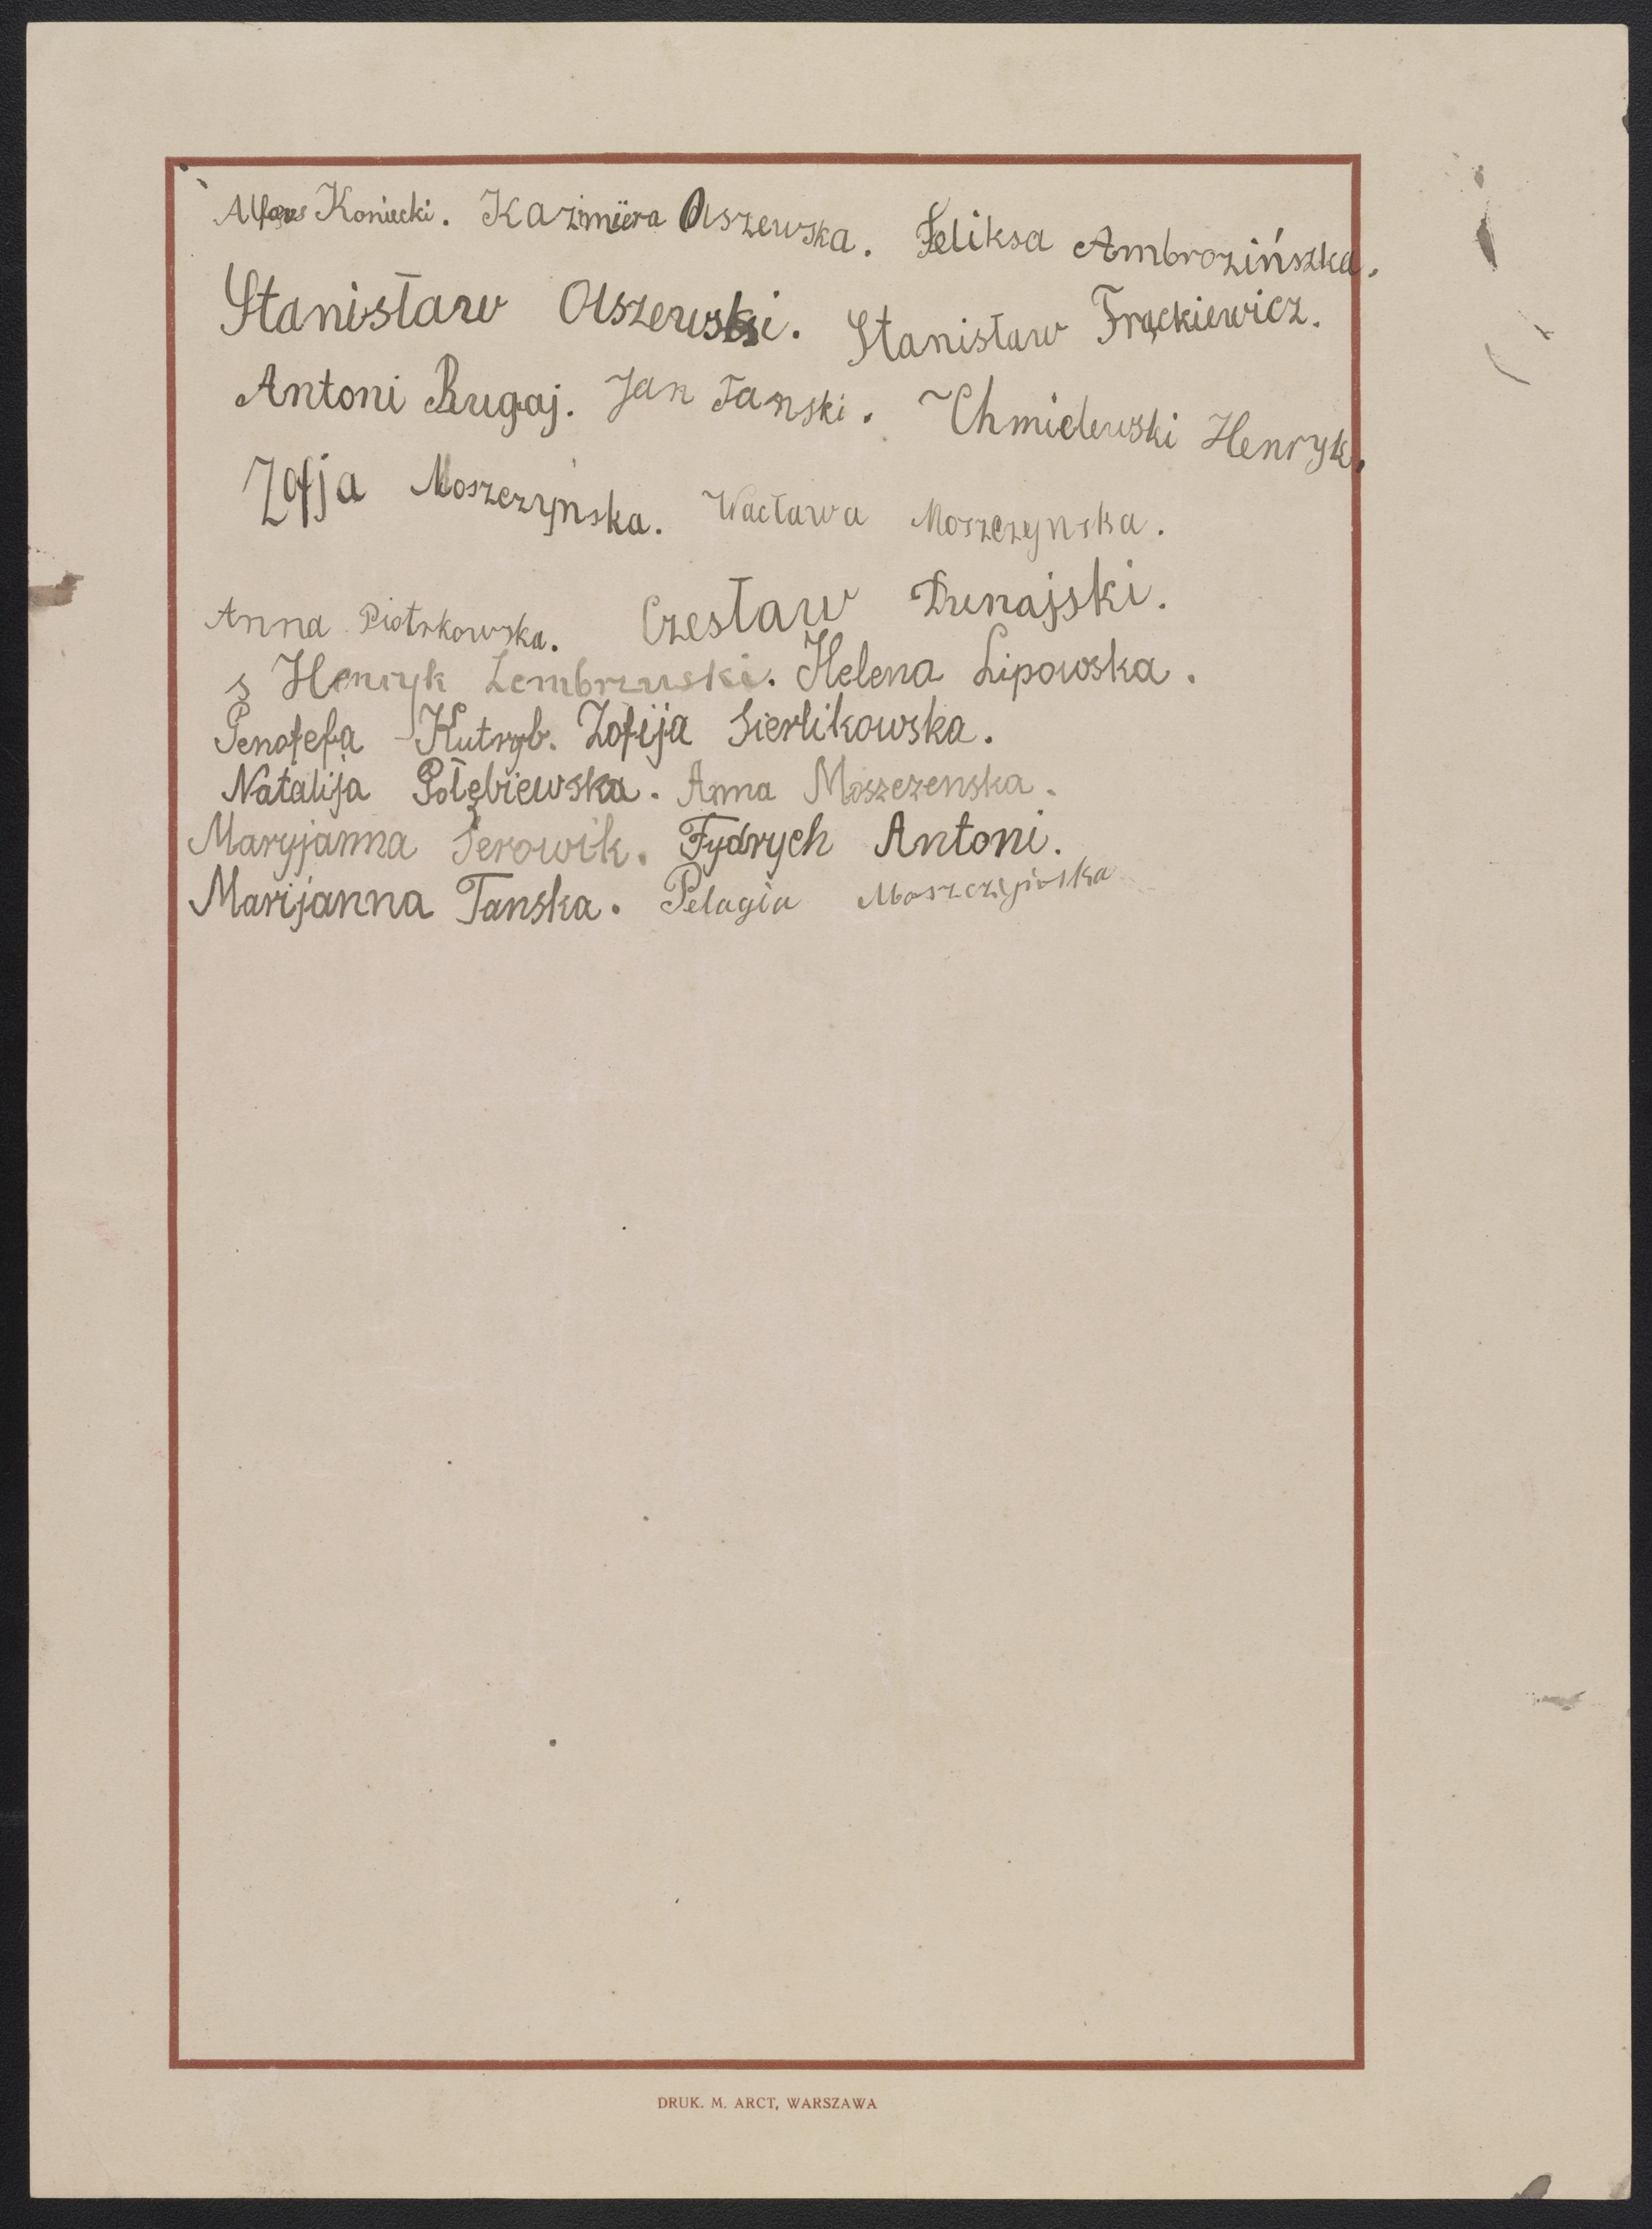 Koniecki. Kazimiera Olszewska. Feliksa Ambrozińszka.
Stanisław Olszewski. Stanisław Frąckiewicz.
Antoni Rugaj. Jan Tanski. Chmielewski Henryk.
Zofja Moszczyńska. Wacława Moszczynska.
Anna Piotrkowska. Czesław Dunajski.
s Henryk Zembrzuski. Helena Lipowska.
Kutryb. Zofija Sierlikowska.
Natalija Połębiewska. Anna Moszczenska.
Maryjanna Serowik. Fydrych Antoni.
Marijanna Tanska. Pelagia
DRUK. M. ARCT, WARSZAWA